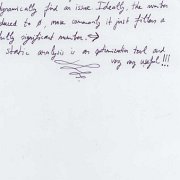 dynamically find an issue. Ideally, the monitor
duced to 0, more commonly it just filters a
fully significant monitor. →
static analysis is an optimization tool and
very very useful!!!